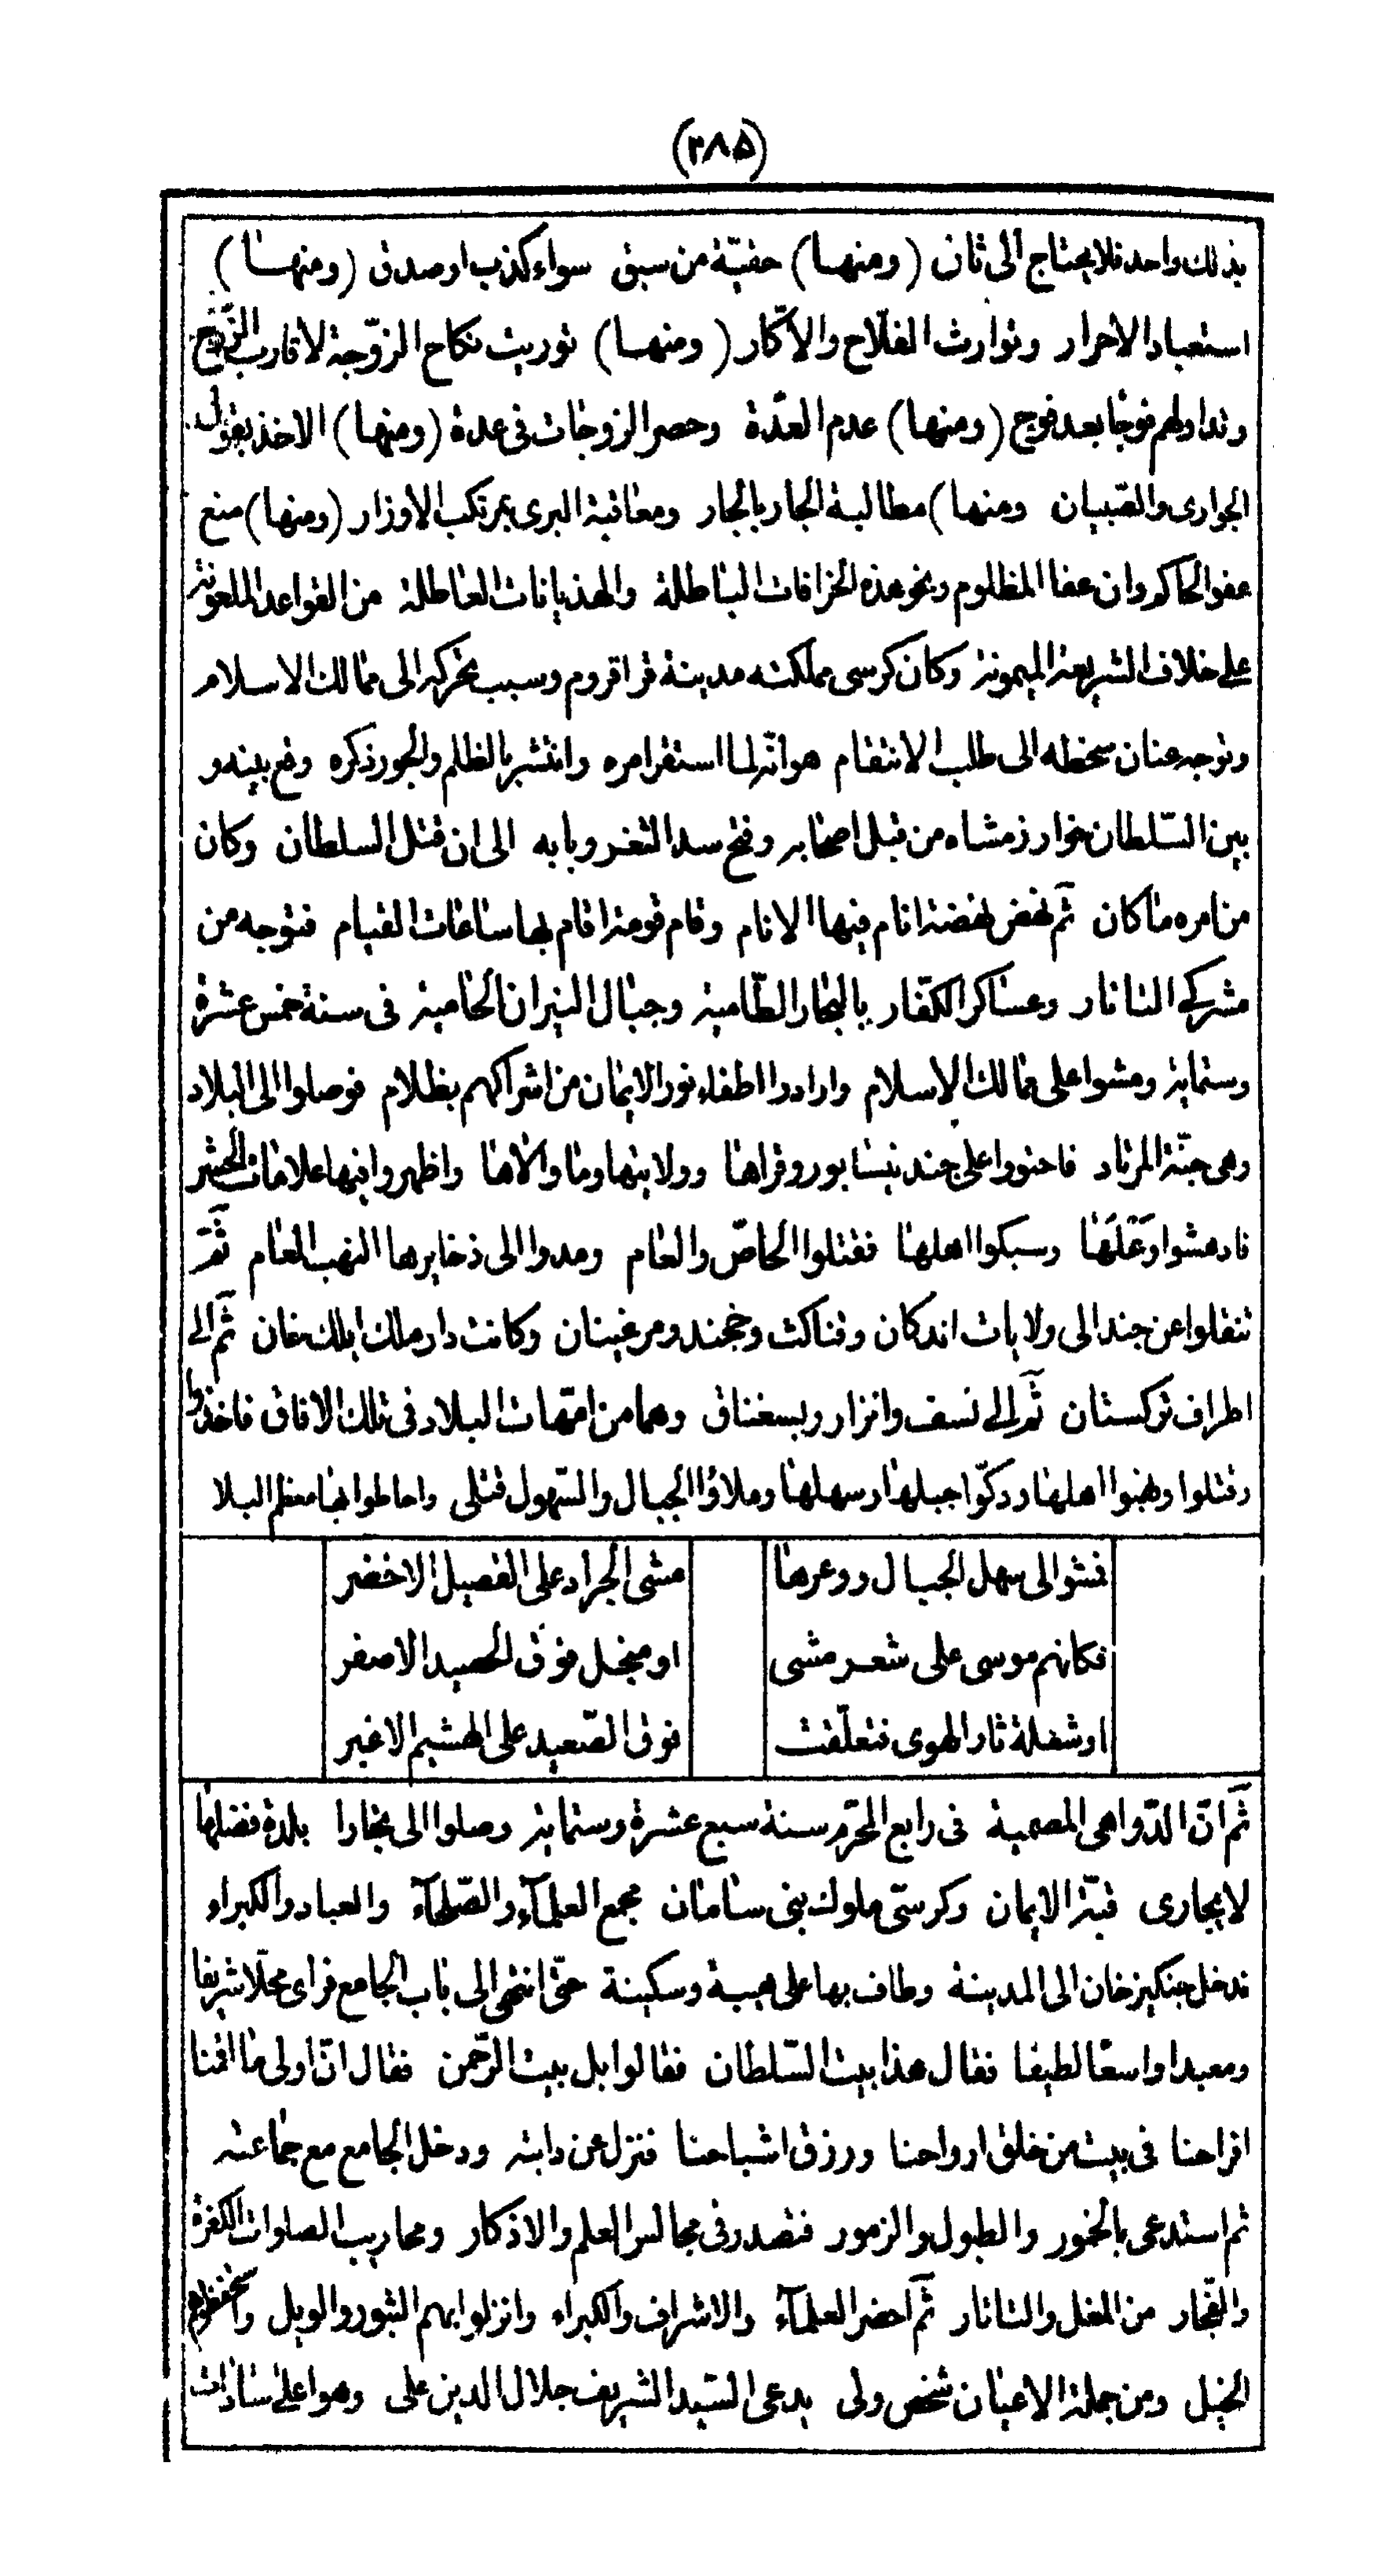 (٢٨۵)
بذلك واحد فلا يحتاج الى ثان (ومنها) حقيّة من سبق سواء كذب او صدق (ومنها)
استعباد الاحرار وتوارث الفلّاح والاكّار (ومنها) توريث نكاح الزوّجة لاقارب الزّوج
وتداولهم فوجًا بعد فوج (ومنها) عدم العدّة وحصر الزوجات فى عدة (ومنها) الاخذ بقول
الجوارى والصّبيان ومنها) مطالبة الجار بالجار ومعاقبة البرى بمرتكب الاوزار (ومنها) منع
عفو الحاكم وان عفا المظلوم ونحو هذه الخرافات الباطلة والهذيانات العاطلة من القواعد الملعونة
على خلاف الشريعة الميمونة وكان كرسى مملكته مدينة قراقروم وسبب تحركه الى ممالك الاسلام
وتوجه عنان سخطه الى طلب الانتقام هو انّه لما استقر امره وانتشر بالظلم والجور ذكره وقع بينه و
بين السّلطان خوارزمشاه من قبل اصحابه وفتح سد الثغر وبابه الى ان قتل السلطان وكان
من امره ما كان ثمّ نهض نهضة انام فيها الانام وقام قومة اقام بها ساعات القيام فتوجه من
مشركى التاتار وعساكر الكفّار بالبحار الطّامية وجبال النيران الحامية فى سنة خمس عشرة
وستمائة ومشوا على ممالك الاسلام وارادوا اطفاء نور الايمان من اشراكهم بظلام فوصلوا الى البلاد
وهى جنّة المرتاد فاحتووا على جند نيسابور وقراها وولايتها وما والاها واظهروا فيها علامات الحشر
فادهشوا وَعْلَهَا وسبكوا اهلها فقتلوا الخاصّ والعام ومدوا الى ذخايرها النهب العام ثمّ
تنقلوا عن جند الى ولايات اندكان وفناكث وخجند ومرغينان وكانت دار ملك ايلك خان ثمّ الى
اطراف تركستان ثمّ الى نسف وانزار وبسغناق وهما من امّهات البلاد فى تلك الافاق فاخذوا
وقتلوا ونهبوا اهلها ودكّوا جبلها وسهلها وملاؤا الجبال والسّهول قتلى واحاطوا بها معظم البلا
فمشوا الى سهل الجبال ووعرها مشى الجراد على الفصيل الاخضر
فكانهم موسى على شعر مشى او منجل فوق الحصيد الاصفر
او شعلة نار الهوى فتعلّقت فوق الصّعيد على الهشيم الاغبر
ثمّ انّ الدّواهى المصمية فى رابع المحرّم سنة سبع عشرة وستمائة وصلوا الى بخارا بلدة فضلها
لا يجارى قبّة الايمان وكرسىّ ملوك بنى سامان مجمع العلمآء والصّلحآء والعباد والكبراء
فدخل جنكيز خان الى المدينة وطاف بها على هيبة وسكينة حتّى انتهى الى باب الجامع فراى محلّا شريفا
ومعبدا واسعًا لطيفا فقال هذا بيت السّلطان فقالوا بل بيت الرّحمن فقال انّ اولى ما اقمنا
افراحنا فى بيت من خلق ارواحنا ورزق اشباحنا فنزل عن دابته ودخل الجامع مع جماعته
ثم استدعى بالخمور والطبول والزمور فتصدر فى مجالس العلم والاذكار ومحاريب الصلوات الكفرة
والفجّار من المغل والتاتار ثمّ احضر العلمآء والاشراف والكبراء وانزلوا بهم الثبور والويل واستحفظوهم
الخيل ومن جملة الاعيان شخص ولى يدعى السّيد الشريف جلال الدين على وهو اعلى سادات